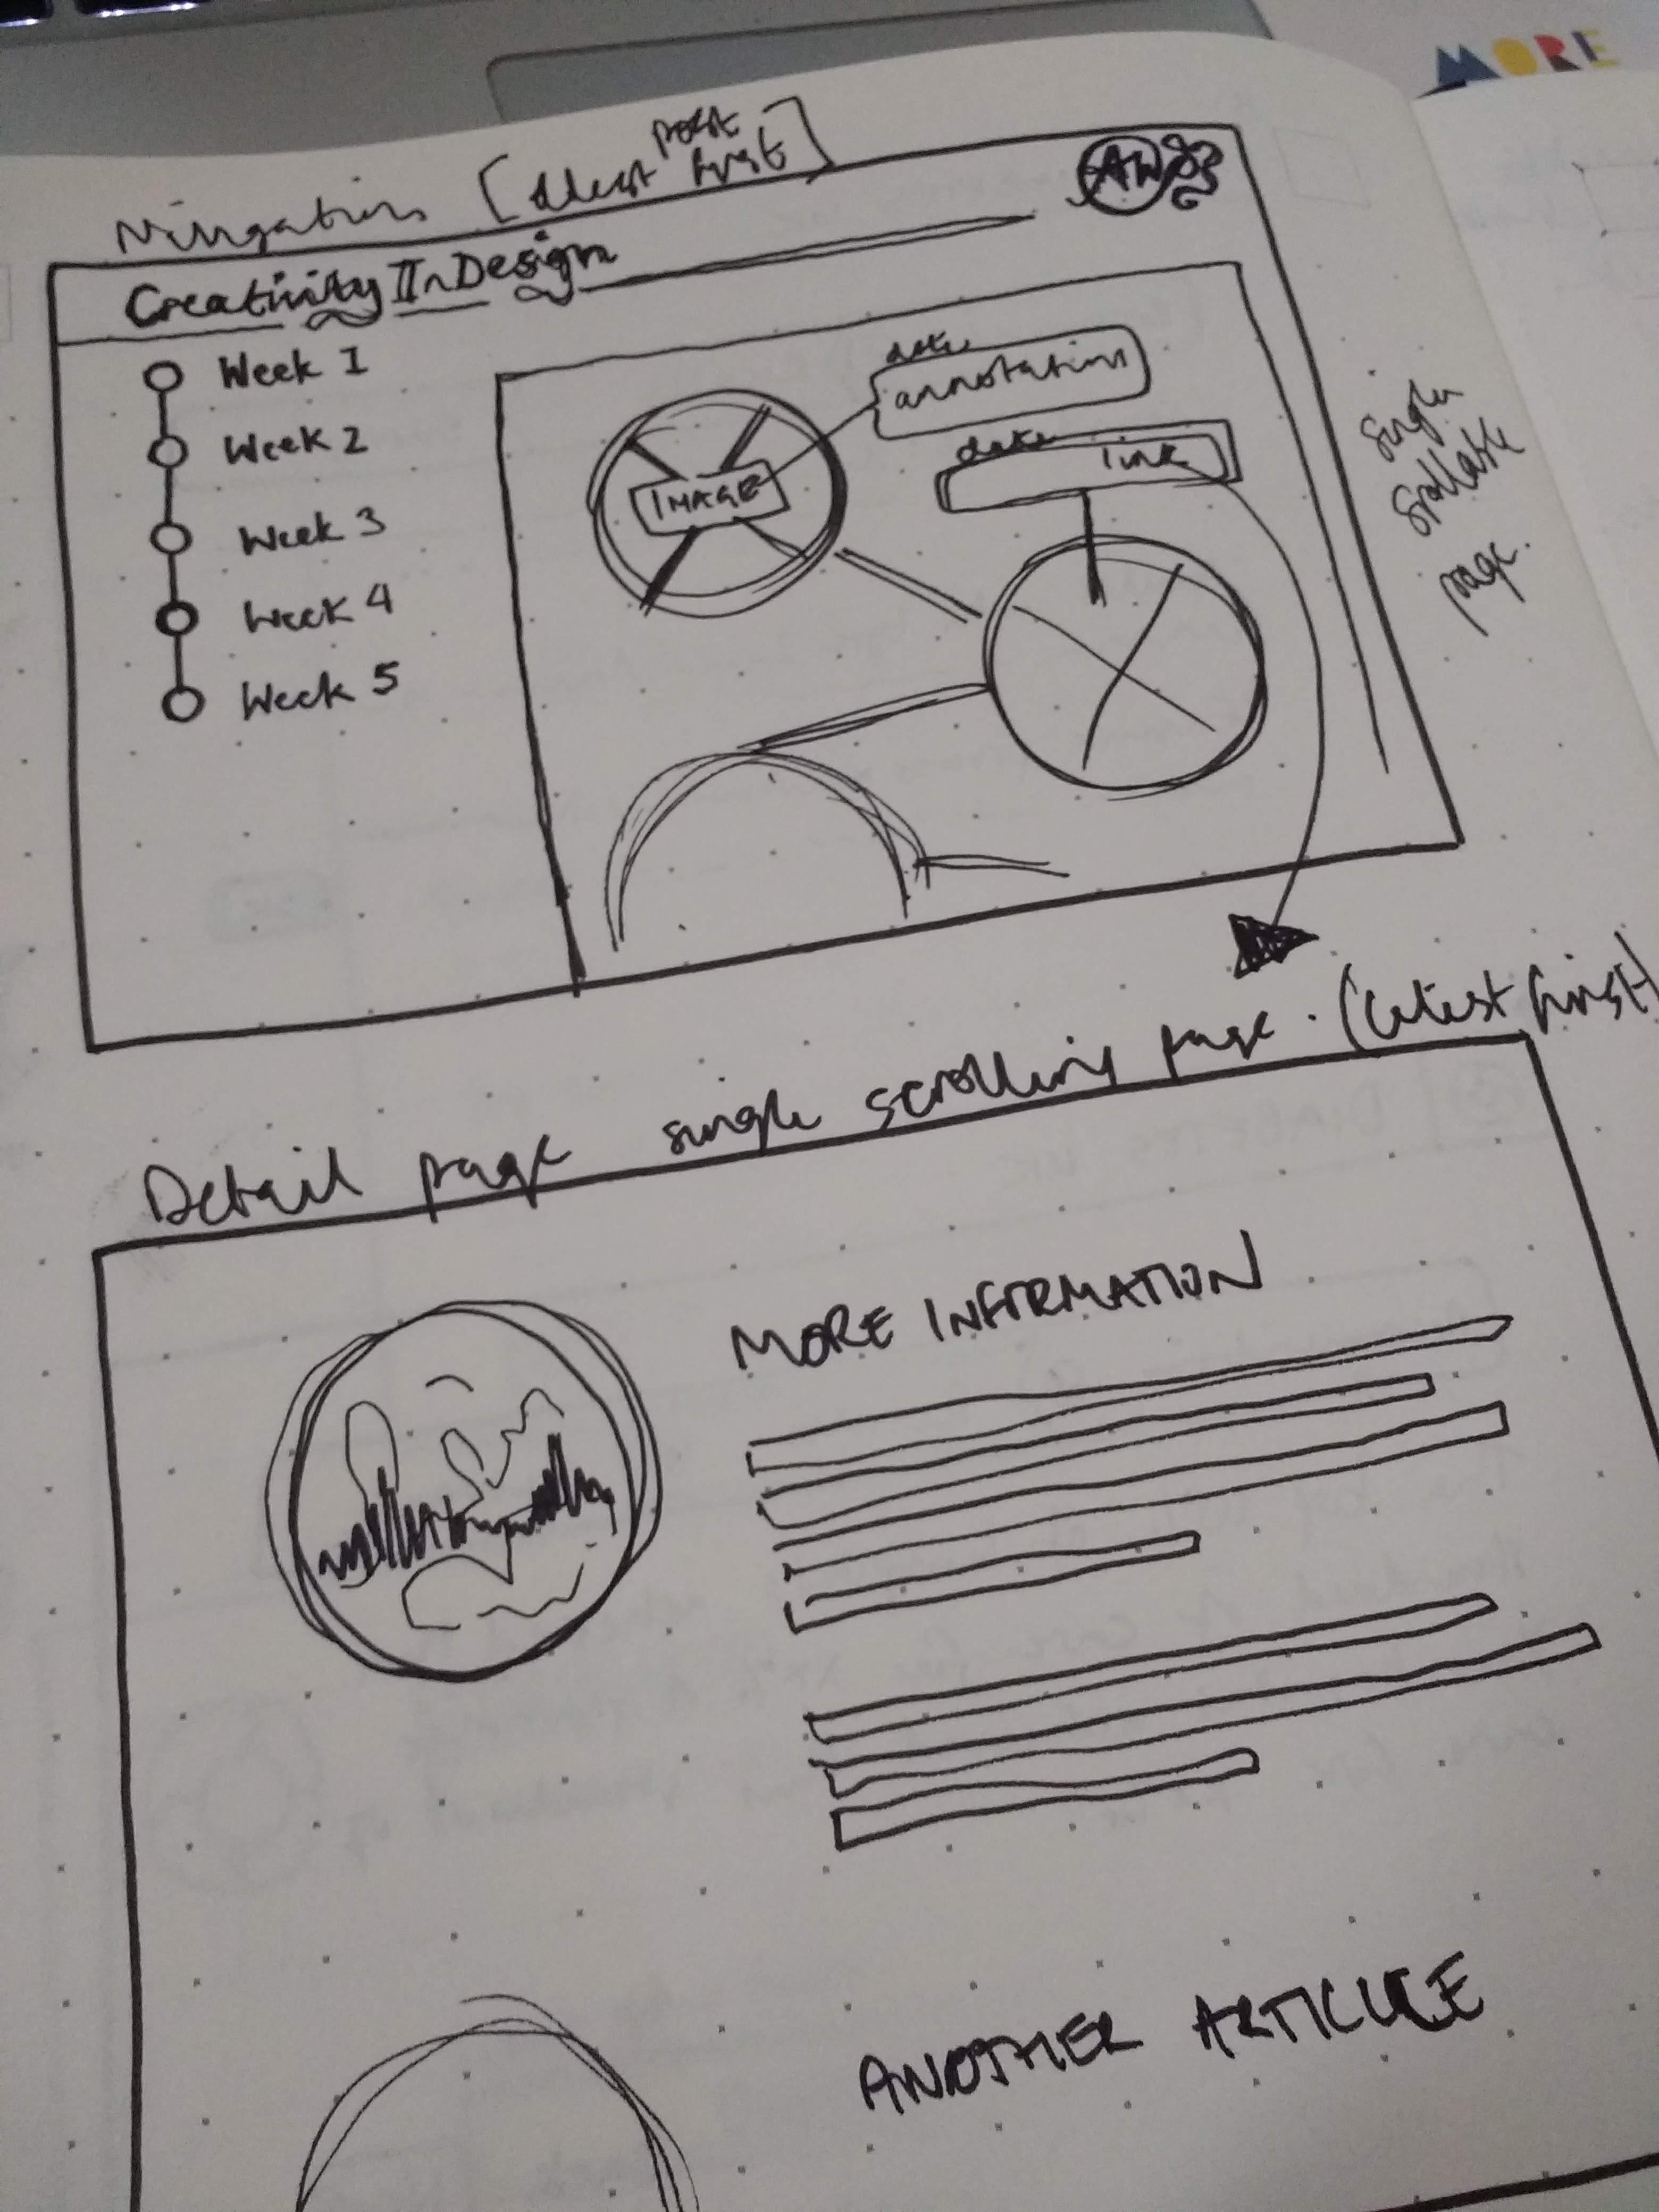 MORE
Navigation [oldest post first]
AW
Creativity In Design
Week 1
Week 2
Week 3
Week 4
Week 5
date
annotation
IMAGE
date link
single
scrollable
page.
Detail page single scrolling page. (latest first)
MORE INFORMATION
ANOTHER ARTICLE